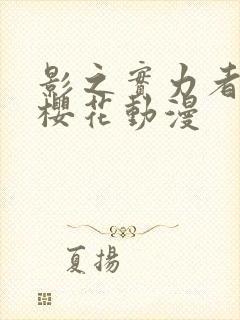 影之實力者
櫻花動漫
夏揚